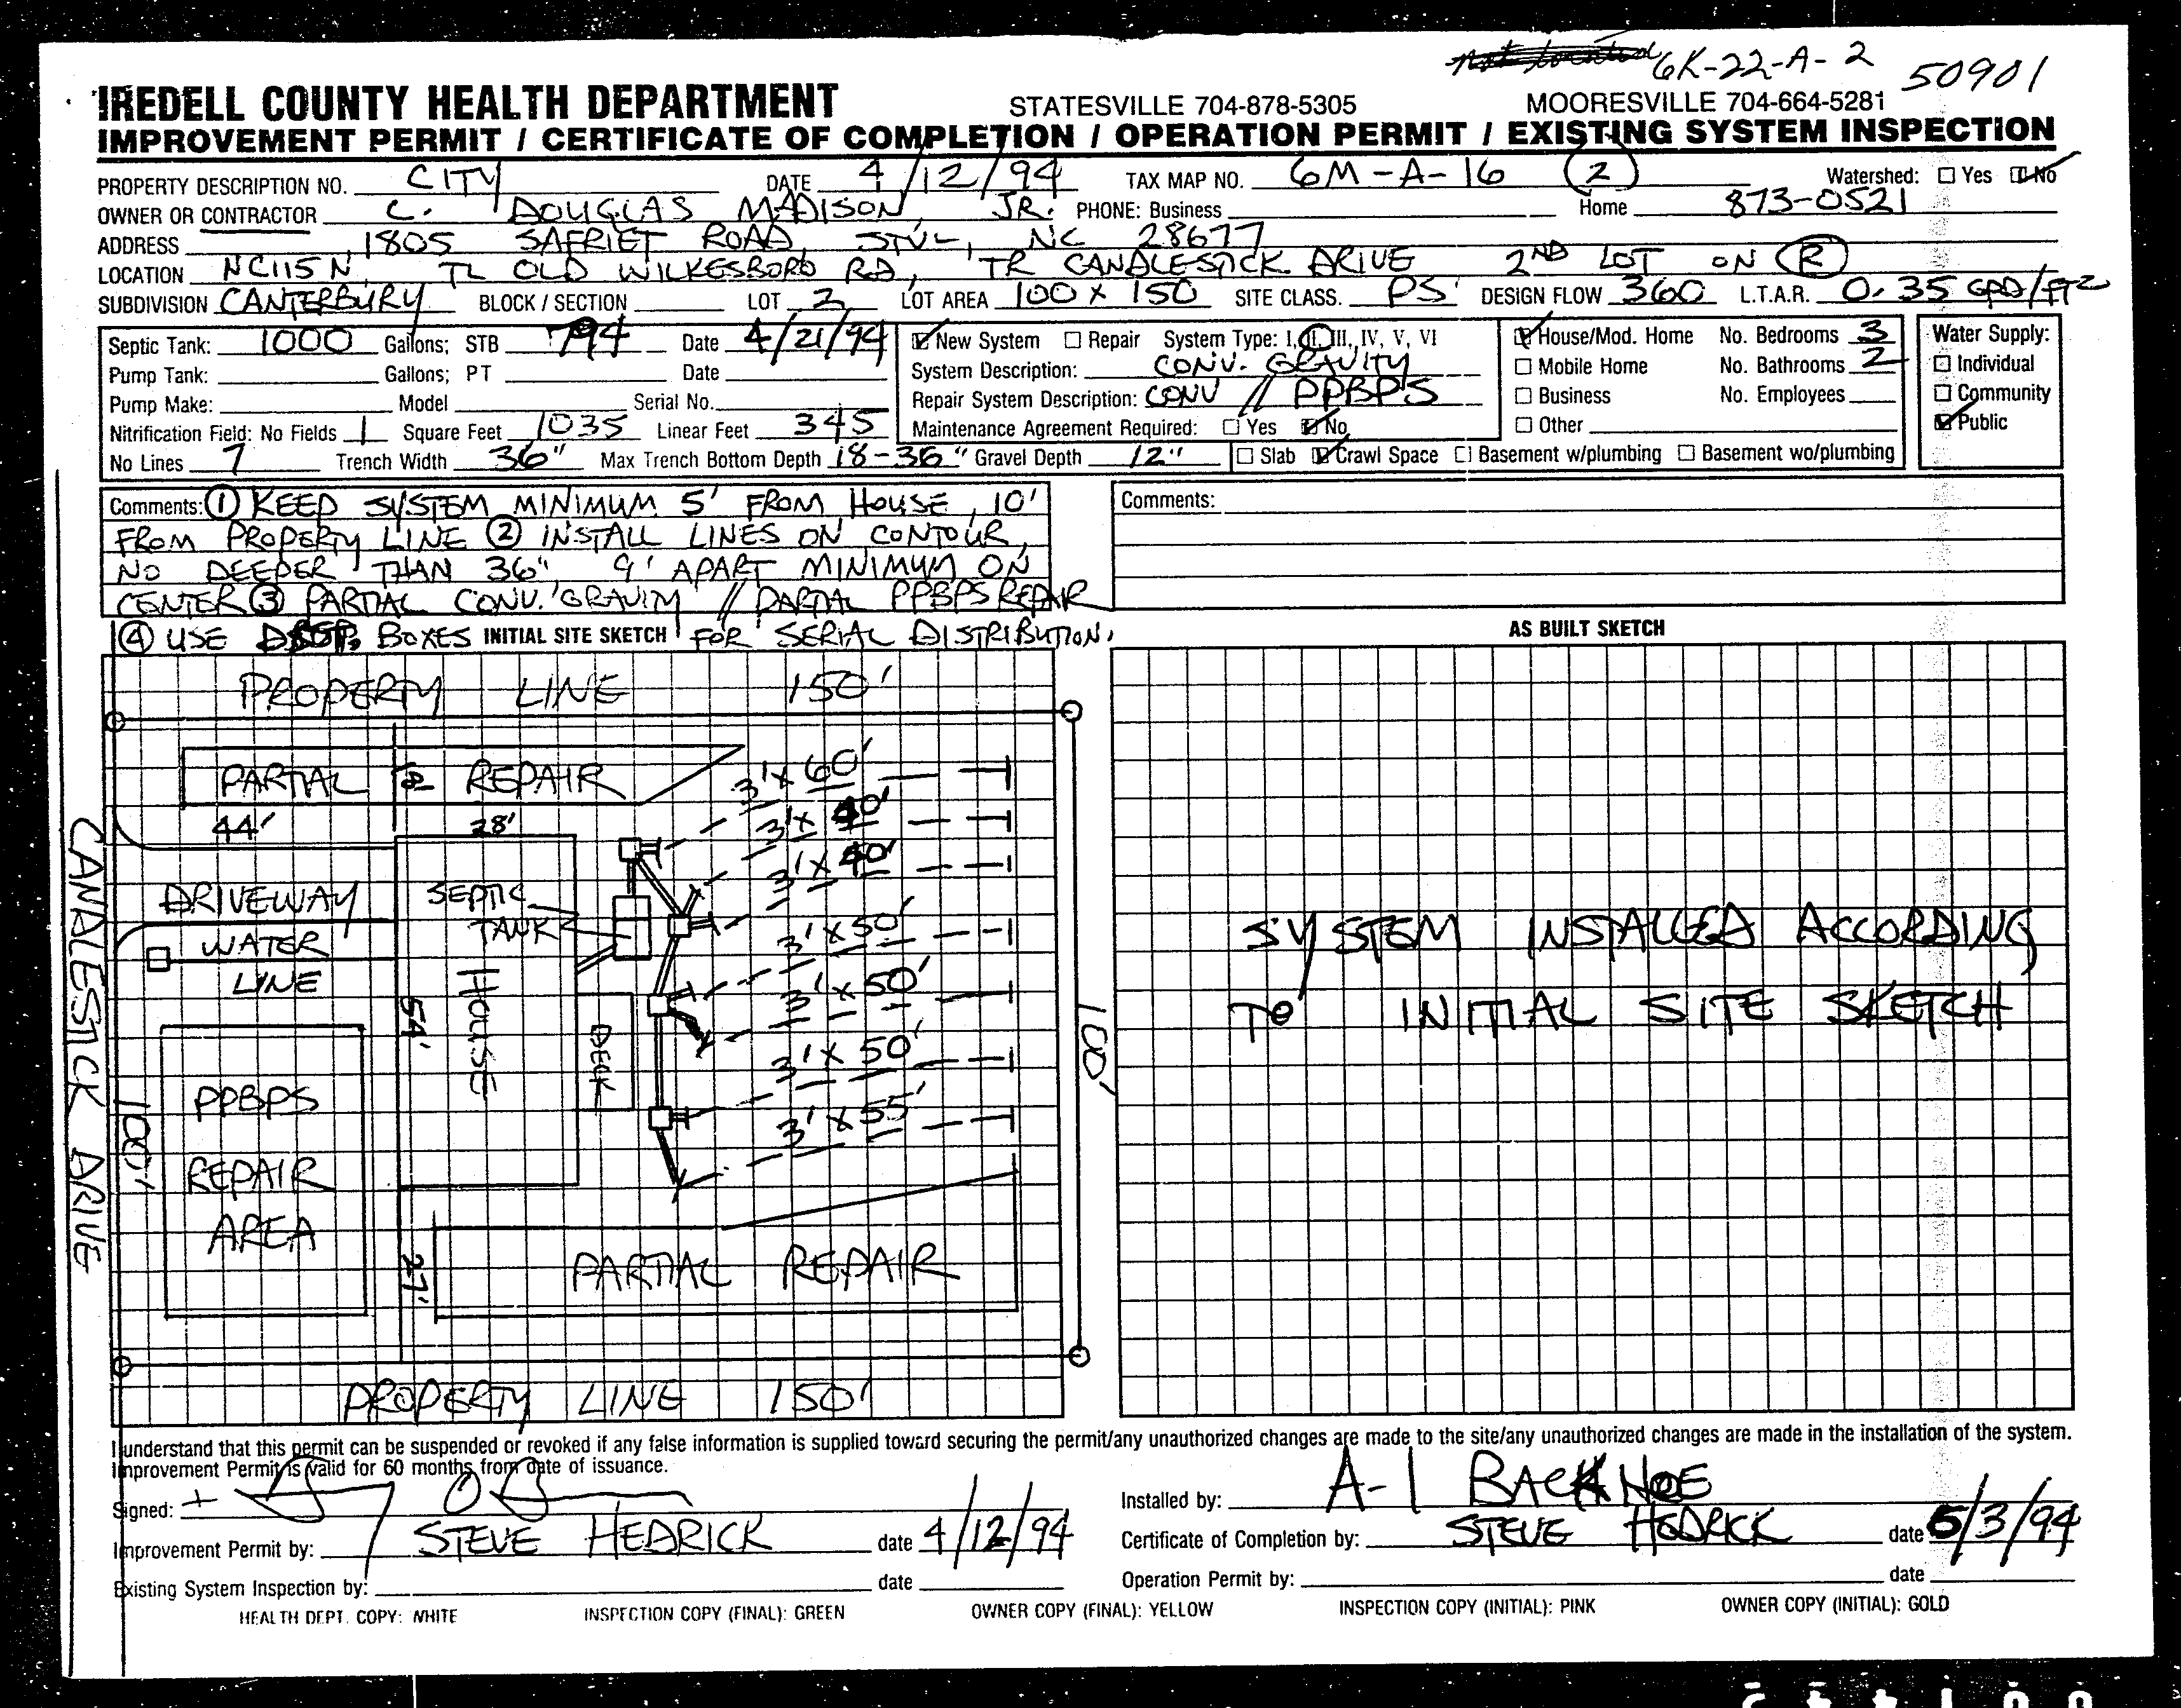 6K-22-A-2 50901
IREDELL COUNTY HEALTH DEPARTMENT STATESVILLE 704-878-5305 MOORESVILLE 704-664-5281
IMPROVEMENT PERMIT / CERTIFICATE OF COMPLETION / OPERATION PERMIT / EXISTING SYSTEM INSPECTION
PROPERTY DESCRIPTION NO. CITY DATE 4/12/94 TAX MAP NO. 6M-A-16 (2) Watershed: ☐ Yes ☑ No
OWNER OR CONTRACTOR C. DOUGLAS MADISON, JR. PHONE: Business Home 873-0521
ADDRESS 1805 SAFRIET ROAD, STVL, NC 28677
LOCATION NC115N, TL OLD WILKESBORO RD, TR CANDLESTICK DRIVE 2ND LOT ON (R)
SUBDIVISION CANTERBURY BLOCK / SECTION LOT 2 LOT AREA 100 X 150 SITE CLASS. PS DESIGN FLOW 360 L.T.A.R. 0.35 GPD/FT2
Septic Tank: 1000 Gallons; STB 794 Date 4/21/94
Pump Tank: Gallons; PT Date
Pump Make: Model Serial No.
Nitrification Field: No Fields 1 Square Feet 1035 Linear Feet 345
No Lines 7 Trench Width 36" Max Trench Bottom Depth 18-36" Gravel Depth 12"
☑ New System ☐ Repair System Type: I, II, III, IV, V, VI
System Description: CONV. GRAVITY
Repair System Description: CONV // PPBPS
Maintenance Agreement Required: ☐ Yes ☑ No
☑ House/Mod. Home No. Bedrooms 3
☐ Mobile Home No. Bathrooms 2
☐ Business No. Employees
☐ Other
☐ Slab ☑ Crawl Space ☐ Basement w/plumbing ☐ Basement wo/plumbing
Water Supply:
☐ Individual
☐ Community
☑ Public
Comments: ① KEEP SYSTEM MINIMUM 5' FROM HOUSE, 10'
FROM PROPERTY LINE ② INSTALL LINES ON CONTOUR,
NO DEEPER THAN 36", 9' APART MINIMUM ON
CENTER ③ PARTIAL CONV. GRAVITY // PARTIAL PPBPS REPAIR
④ USE BOXES FOR SERIAL DISTRIBUTION.
INITIAL SITE SKETCH
Comments:
AS BUILT SKETCH
PROPERTY LINE 150'
PARTIAL REPAIR
18'
44'
28'
3' X 60'
3' X 40'
3' X 40'
3' X 50'
3' X 50'
3' X 50'
3' X 55'
DRIVEWAY
SEPTIC
TANK
WATER
LINE
HOUSE
54'
DECK
CANDLESTICK DRIVE
100'
100'
PPBPS
REPAIR
AREA
27'
PARTIAL REPAIR
PROPERTY LINE 150'
SYSTEM INSTALLED ACCORDING
TO INITIAL SITE SKETCH
I understand that this permit can be suspended or revoked if any false information is supplied toward securing the permit/any unauthorized changes are made to the site/any unauthorized changes are made in the installation of the system.
Improvement Permit is valid for 60 months from date of issuance.
Signed:
Installed by: A-1 BACKHOE
Improvement Permit by: STEVE HEDRICK date 4/12/94
Certificate of Completion by: STEVE HEDRICK date 5/3/94
Existing System Inspection by: date
Operation Permit by: date
HEALTH DEPT. COPY: WHITE INSPECTION COPY (FINAL): GREEN OWNER COPY (FINAL): YELLOW INSPECTION COPY (INITIAL): PINK OWNER COPY (INITIAL): GOLD